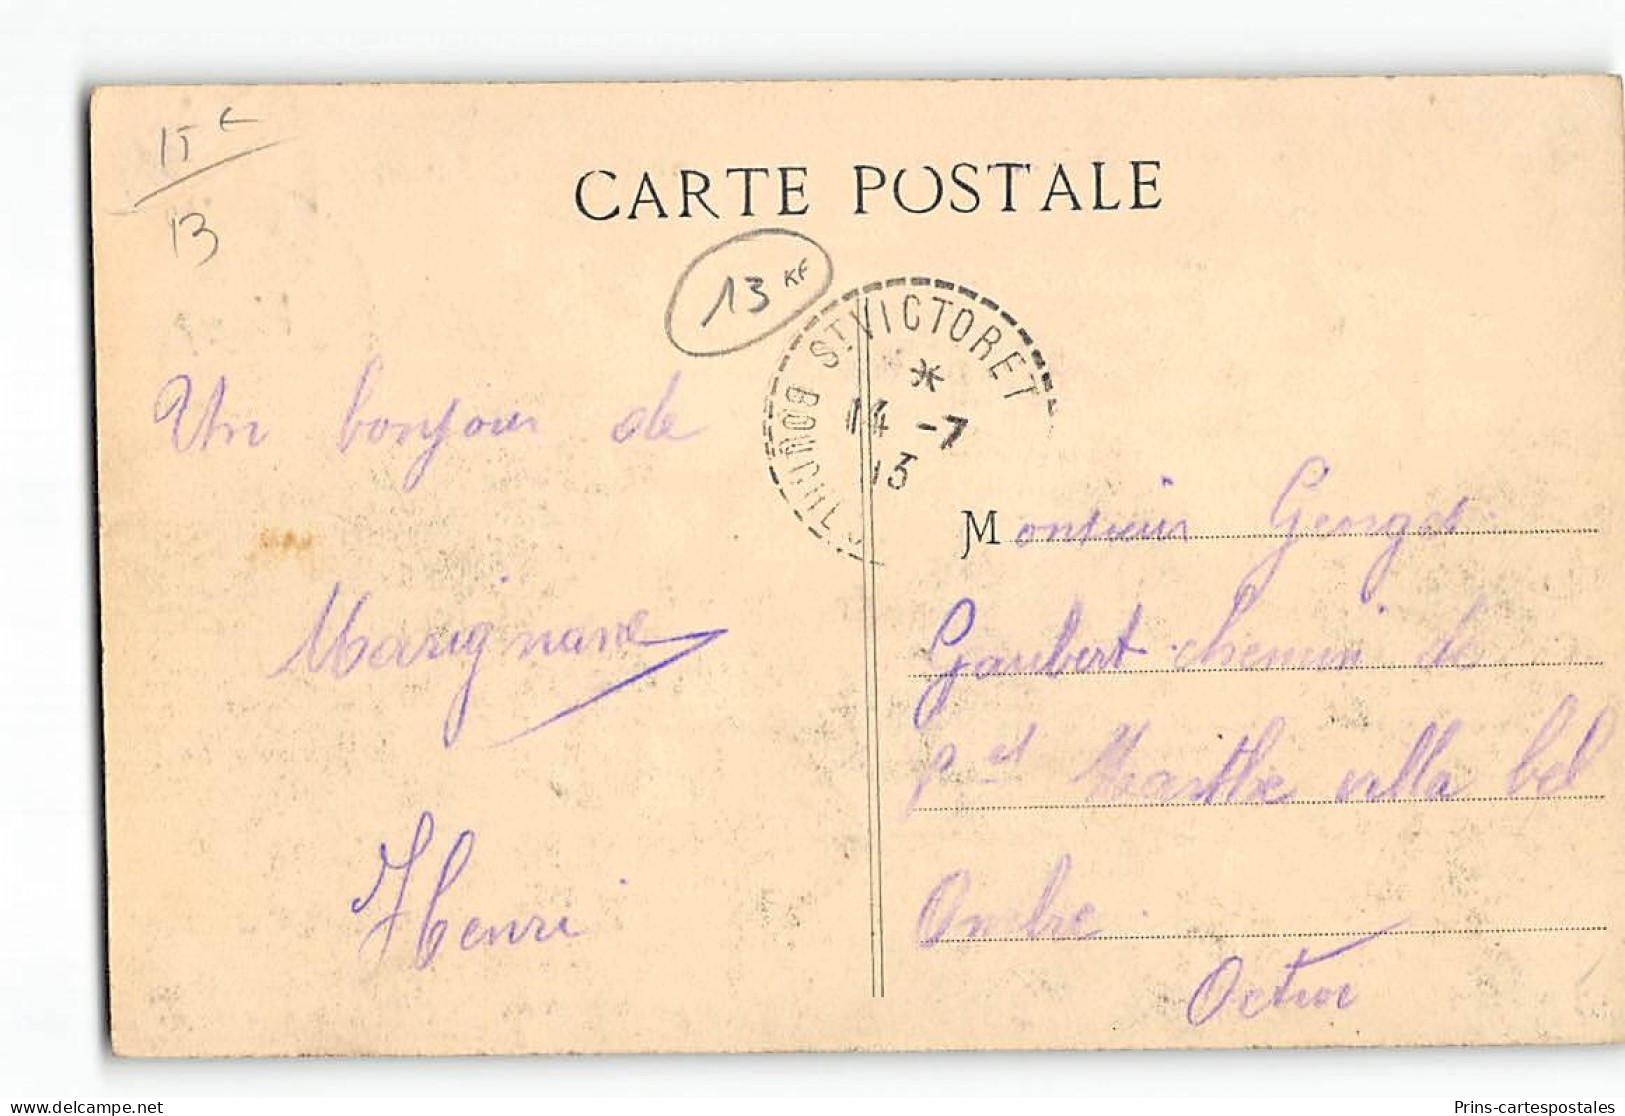 15 €
13
CARTE POSTALE
13 KF
ST VICTORET
*
14 -7
13
BOUCHES
Un bonjour de
Marignane
Henri
Monsieur Georges
Gaubert chemin de
Ste Marthe villa bel
Ombre
Octroi
Prins-cartespostales